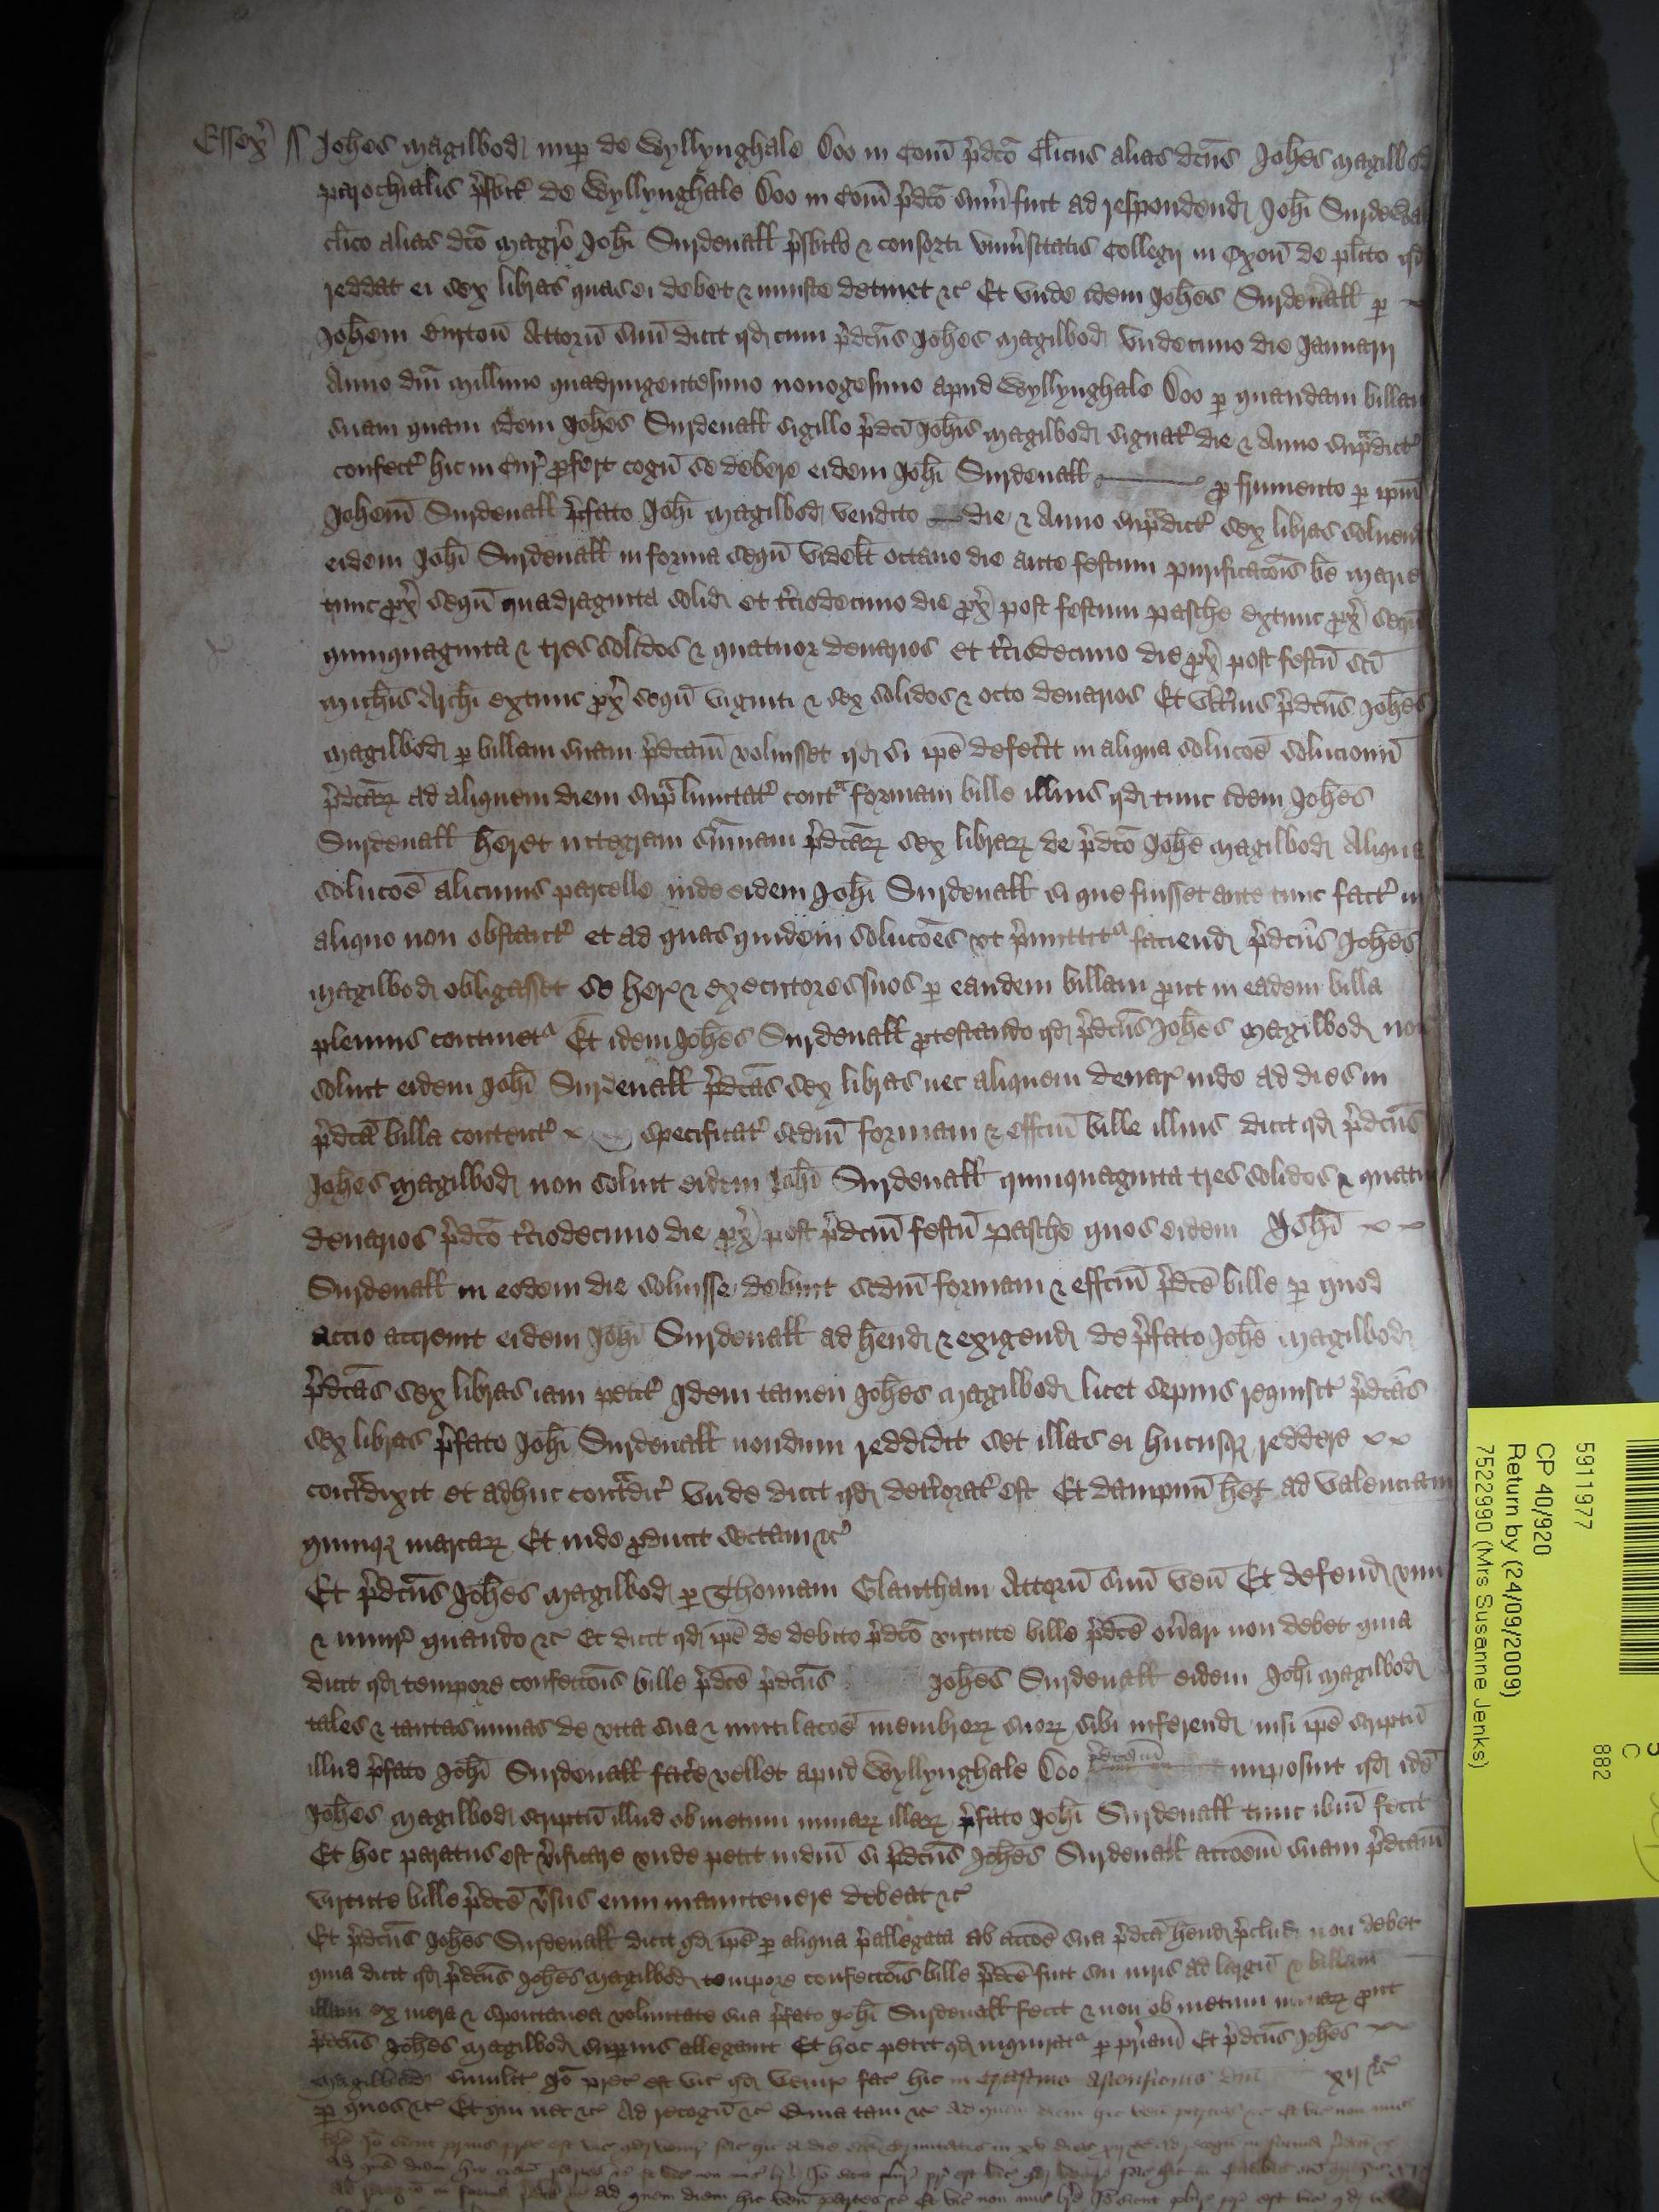 Essex̃ ss Joh̃es Magilbod nup de Wyllynghale Doo in Com̃ p̃dc̃o Cl̃icus alias dc̃us Joh̃es Magilbod
parochialis p̃sbit̃ de Wyllynghale Doo in Com̃ p̃dc̃o sum̃ fuit ad respondend Joh̃i Surdevall
cl̃ico alias dc̃o magr̃o Joh̃i Surdevall p̃sbit̃o & consorti Collegij in Oxoñ de pl̃ito qd
reddat ei sex libras quas ei debet & iniuste detinet &c̃ Et unde idem Joh̃es Surdevall p
Joh̃em Attorñ suũ dicit qd cum p̃dc̃us Joh̃es Magilbod undecimo die Januarij
Anno dñi millimo quadringentesimo nonogesimo apud Wyllynghale Doo p quandam billam
suam quam idem Joh̃es Surdevall sigillo p̃dc̃i Joh̃is Magilbod signat̃ die & Anno sup̃dict̃
confect̃ hic in Cur̃ p̃fert cogñ se debere eidem Joh̃i Surdevall p frumento p ip̃m
Joh̃em̃ Surdevall p̃fato Joh̃i Magilbod vendito die & Anno sup̃dict̃ sex libras solvend
eidem Joh̃i Surdevall in forma seqũ videl̃t octavo die ante festum purificac̃ois b̃e Marie
tunc px̃ seqũ quadraginta solid et t̃ciodecimo die px̃ post festum pasche extunc px̃ seqũ
quinquaginta & tres solidos & quatuor denarios et t̃ciodecimo die px̃ post festũ sc̃i
Mich̃is Arch̃i extunc px̃ seqũ viginti & sex solidos & octo denarios Et ult̃ius p̃dc̃us Joh̃es
Magilbod p billam suam p̃dc̃am̃ voluisset qd si ip̃e defec̃it in aliqua soluc̃oe solucionũ
p̃dc̃ar̃ ad aliquem diem sup̃ limitat̃ cont̃ formam bille illius qd tunc idem Joh̃es
Surdevall h̃eret integram sum̃am p̃dc̃ar̃ sex librar̃ de p̃dc̃o Joh̃e Magilbod Aliqua
soluc̃oe alicuius parcelle inde eidem Joh̃i Surdevall si que fuisset ante tunc fact̃ in
aliquo non obstant̃ et ad quas quidem soluc̃oes ut p̃mittit̃ faciend p̃dc̃us Joh̃es
Magilbod obligasset se her̃ & executores suos p eandem billam put in eadem billa
plenius continet̃ Et idem Joh̃es Surdevall ptestando qd p̃dc̃us Joh̃es Magilbod non
soluit eidem Joh̃i Surdevall p̃dc̃as sex libras nec aliquem denar̃ inde ad dies in
p̃dc̃a billa content̃ specificat̃ scdm̃ formam & eff̃cm̃ bille illius dicit qd p̃dc̃us
Joh̃es Magilbod non soluit eidem Joh̃i Surdevall quinquaginta tres solidos & quatuor
denarios p̃dc̃o t̃ciodecimo die px̃ post p̃dc̃m̃ festũ pasche quos eidem Joh̃i
Surdevall in eodem die soluisse debuit scdm̃ formam & eff̃cm̃ p̃dc̃e bille p quod
accio accrevit eidem Joh̃i Surdevall ad h̃end & exigend de p̃fato Joh̃e Magilbod
p̃dc̃as sex libras iam petit̃ Idem tamen Joh̃es Magilbod licet sepius requisit̃ p̃dc̃as
sex libras p̃fato Joh̃i Surdevall nondum reddidit set illas ei hucusq reddere
cont̃dixit et adhuc cont̃dic̃ Unde dicit qd det̃iorat̃ est Et dampnũ h̃et ad valenciam
quinq marcar̃ Et inde pducit sectam &c̃
Et p̃dc̃us Joh̃es Magilbod p Thomam Glantham Attorñ suũ veñ Et defend vim
& iniur̃ quando &c̃ Et dicit qd ip̃e de debito p̃dc̃o virtute bille p̃dc̃e on̂ari non debet quia
dicit qd tempore confecc̃ois bille p̃dc̃e p̃dc̃us Joh̃es Surdevall eidem Joh̃i Magilbod
tales & tantas minas de vita sua & mutilac̃oe membror̃ suor̃ sibi inferend nisi ip̃e scriptũ
illud p̃fato Joh̃i Surdevall fac̃e vellet apud Wyllynghale Doo imposuit qd idẽ
Joh̃es Magilbod scriptũ illud ob metum minar̃ illar̃ p̃fato Joh̃i Surdevall tunc ib̃m fecit
Et hoc paratus est ṽificare unde petit iudm̃ si p̃dc̃us Joh̃es Surdevall acc̃oem̃ suam p̃dc̃am̃
virtute bille p̃dc̃e ṽsus eum manutenere debeat &c̃
Et p̃dc̃us Joh̃es Surdevall dicit qd ip̃e p aliqua p̃allegata ab acc̃oe sua p̃dc̃a h̃end p̃clud non debet
quia dicit qd p̃dc̃us Joh̃es Magilbod tempore confecc̃ois bille p̃dc̃e fuit sui iuris ad largũ & billam
illam ex mera & spontanea voluntate sua p̃fato Joh̃i Surdevall fecit & non ob metum minar̃ put
p̃dc̃us Joh̃es Magilbod supius allegavit Et hoc petit qd inquirat̃ p pr̃iam̃ Et p̃dc̃us Joh̃es
Magilbod similit̃ Iõ prec̃ est vic̃ qd venir̃ fac̃ hic in Crastino Ascensionis dñi xij &c̃
p quos &c̃ Et qui nec &c̃ Ad recogñ &c̃ Quia tam &c̃ Ad quem diem hic veñ partes &c̃ Et vic̃ non mis̃
5911977
CP 40/920
Return by (24/09/2009)
7522990 (Mrs Susanne Jenks)
C
882